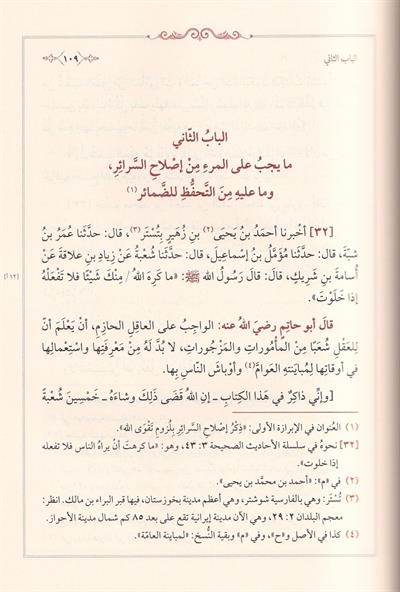 الباب الثاني
١٠٩
البابُ الثّاني
ما يجبُ على المرءِ مِنْ إصْلاحِ السَّرائِرِ،
وما عليهِ مِنَ التَّحفُّظِ للضَّمائر (١)
[٣٢] أخْبرنا أحمَدُ بنُ يَحيَى (٢) بنِ زُهَيرٍ بِتُسْتَر (٣)، قال: حدَّثَنا عُمَرُ بنُ
شبّةَ، قال: حدَّثَنا مُؤَمَّلُ بنُ إسْماعيلَ، قال: حدَّثَنا شُعبةُ عَنْ زيادِ بنِ عِلاقةَ عَنْ
أُسامةَ بنِ شَريكٍ، قالَ: قالَ رَسُولُ اللهِ ﷺ: «ما كَرِهَ اللهُ / مِنْكَ شَيْئًا فلا تَفْعَلْهُ
[١٢/أ]
إذا خَلَوْتَ».
قالَ أبو حاتِمٍ رضيَ اللهُ عنه: الواجبُ على العاقلِ الحازِمِ، أنْ يَعلَمَ أنَّ
للِعَقْلِ شُعَبًا مِنَ المأمُوراتِ والمَزْجُوراتِ، لا بُدَّ لَهُ مِنْ مَعرِفَتِها واسْتِعمالِها
في أوقاتِها لِمُبايَنتِهِ العَوامَّ (٤) وأوْباشَ النّاسِ بِها.
[وإنّي ذاكِرٌ في هَذا الكِتابِ ـ إنِ اللهُ قَضَى ذَلِكَ وشاءَهُ ـ خَمْسِينَ شُعْبةً
(١) العُنوان في الإبرازة الأولى: «ذِكْرُ إصْلاحِ السَّرائِرِ بِلُزومِ تَقْوَى الله».
[٣٢] نحوهُ في سلسلة الأحاديث الصحيحة ٣: ٤٣، وهو: «ما كرهتَ أنْ يراهُ الناس فلا تفعله
إذا خلوت».
(٢) في «م»: «أحمد بن محمَّد بن يحيى».
(٣) تُسْتَر: وهي بالفارسية شوشتر، وهي أعظم مدينة بخوزستان، فيها قبر البراء بن مالك. انظر:
معجم البلدان ٢: ٢٩، وهي الآن مدينة إيرانية تقع على بعد ٨٥ كم شمال مدينة الأحواز.
(٤) كذا في الأصل و«ح»، وفي «م» وبقية النُّسخ: «لمباينة العامّة».